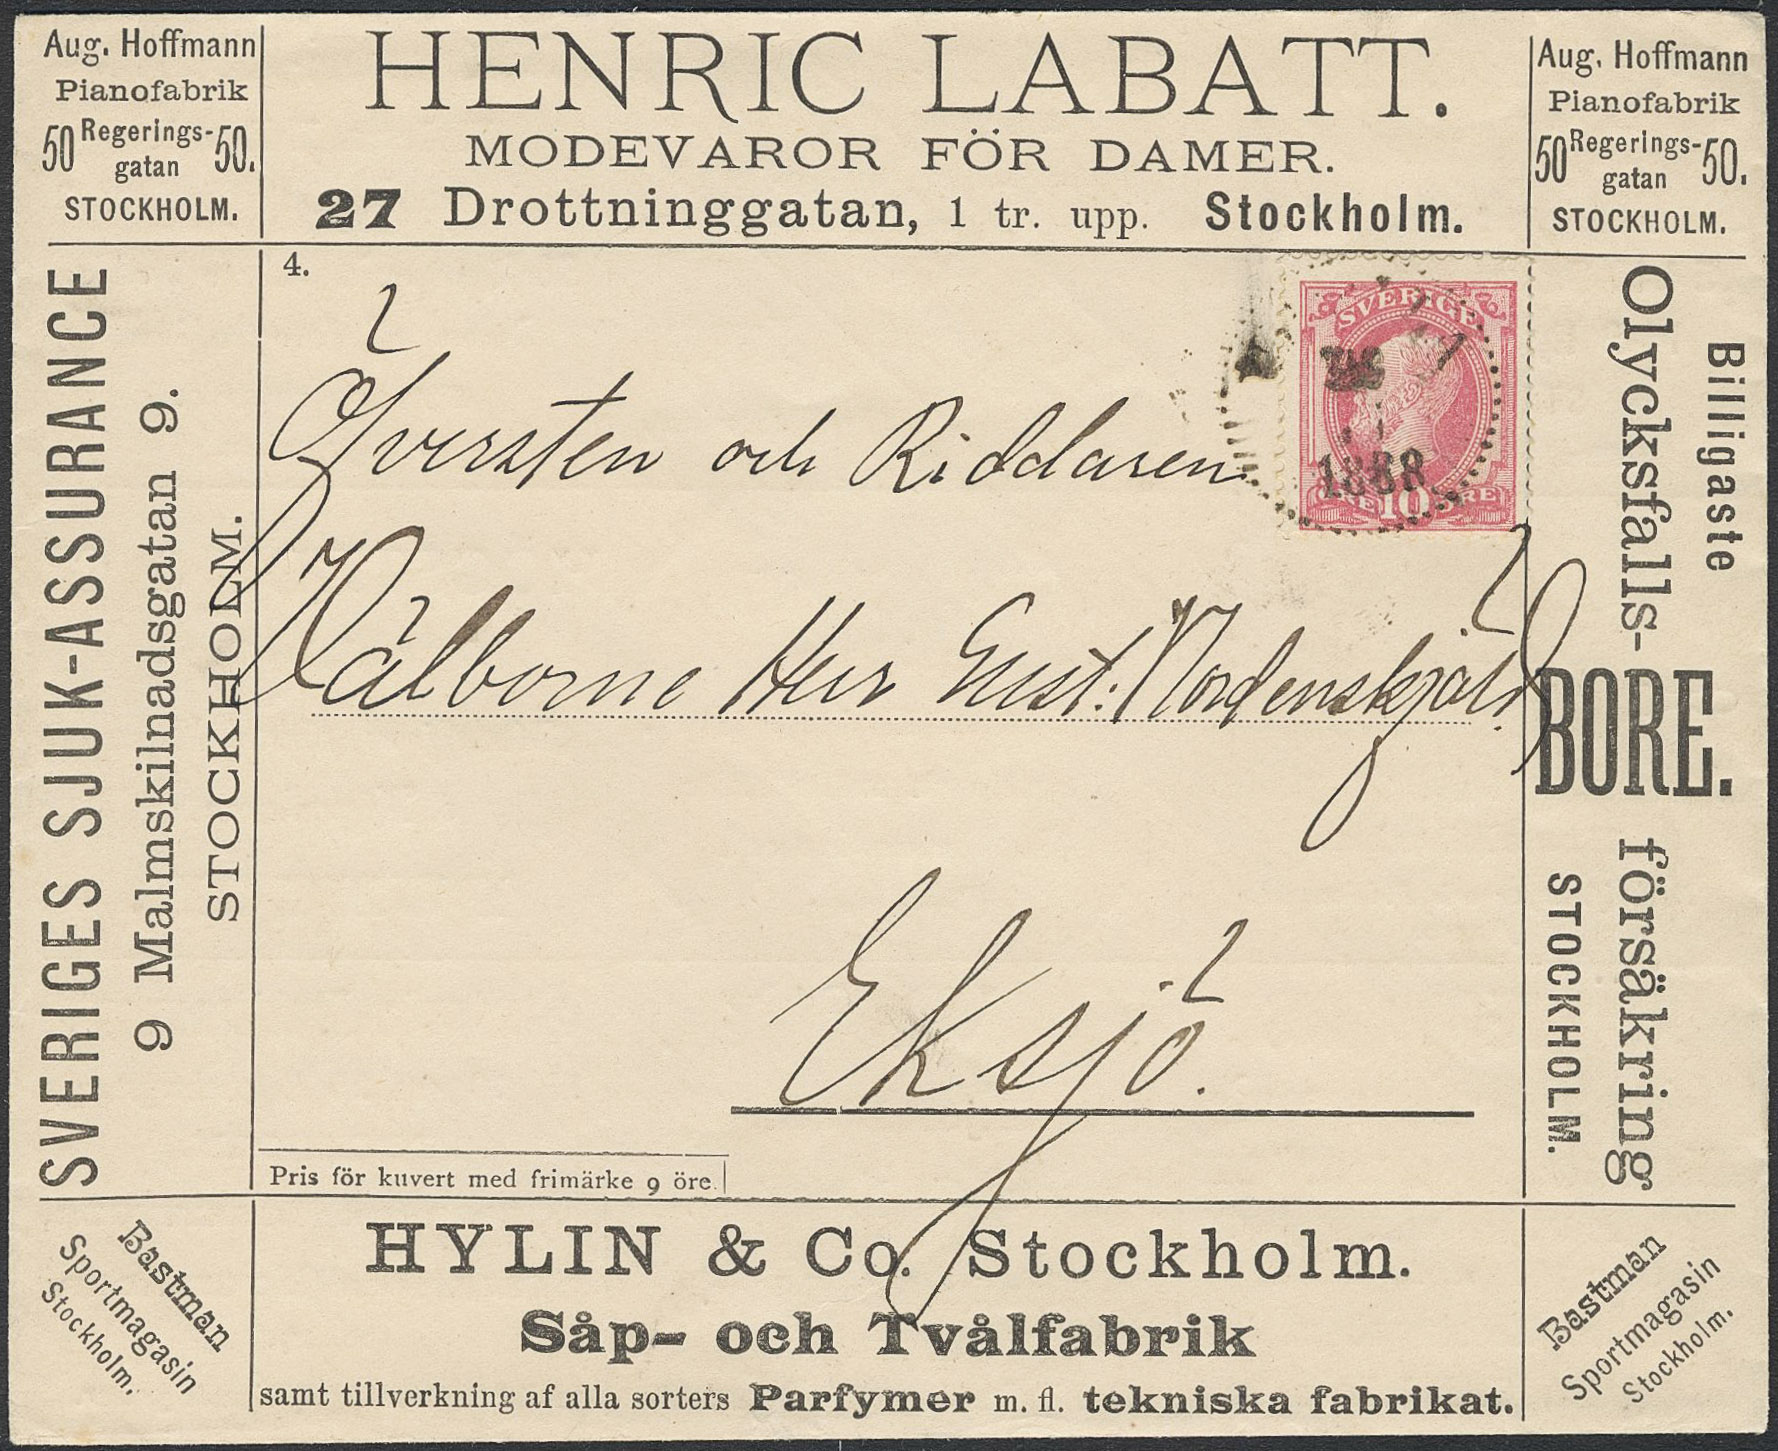 Aug. Hoffmann
Pianofabrik
50 Regerings- 50.
gatan
STOCKHOLM.
HENRIC LABATT.
MODEVAROR FÖR DAMER.
27 Drottninggatan, 1 tr. upp. Stockholm.
Aug. Hoffmann
Pianofabrik
50 Regerings- 50.
gatan
STOCKHOLM.
SVERIGES SJUK-ASSURANCE
9 Malmskilnadsgatan 9.
STOCKHOLM.
4.
SVERIGE
1888
10 ÖRE
Öfversten och Riddaren
Välborne Herr Gust: Nordenskjöld
Eksjö.
Billigaste
Olycksfalls-
BORE.
försäkring
STOCKHOLM.
Pris för kuvert med frimärke 9 öre.
Bastman
Sportmagasin
Stockholm.
HYLIN & Co. Stockholm.
Såp- och Tvålfabrik
samt tillverkning af alla sorters Parfymer m. fl. tekniska fabrikat.
Bastman
Sportmagasin
Stockholm.